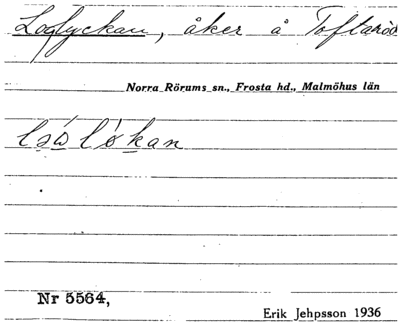 Loglyckan, åker å Toftaröd
Norra Rörums sn., Frosta hd., Malmöhus län
Nr 5564,
Erik Jehpsson 1936